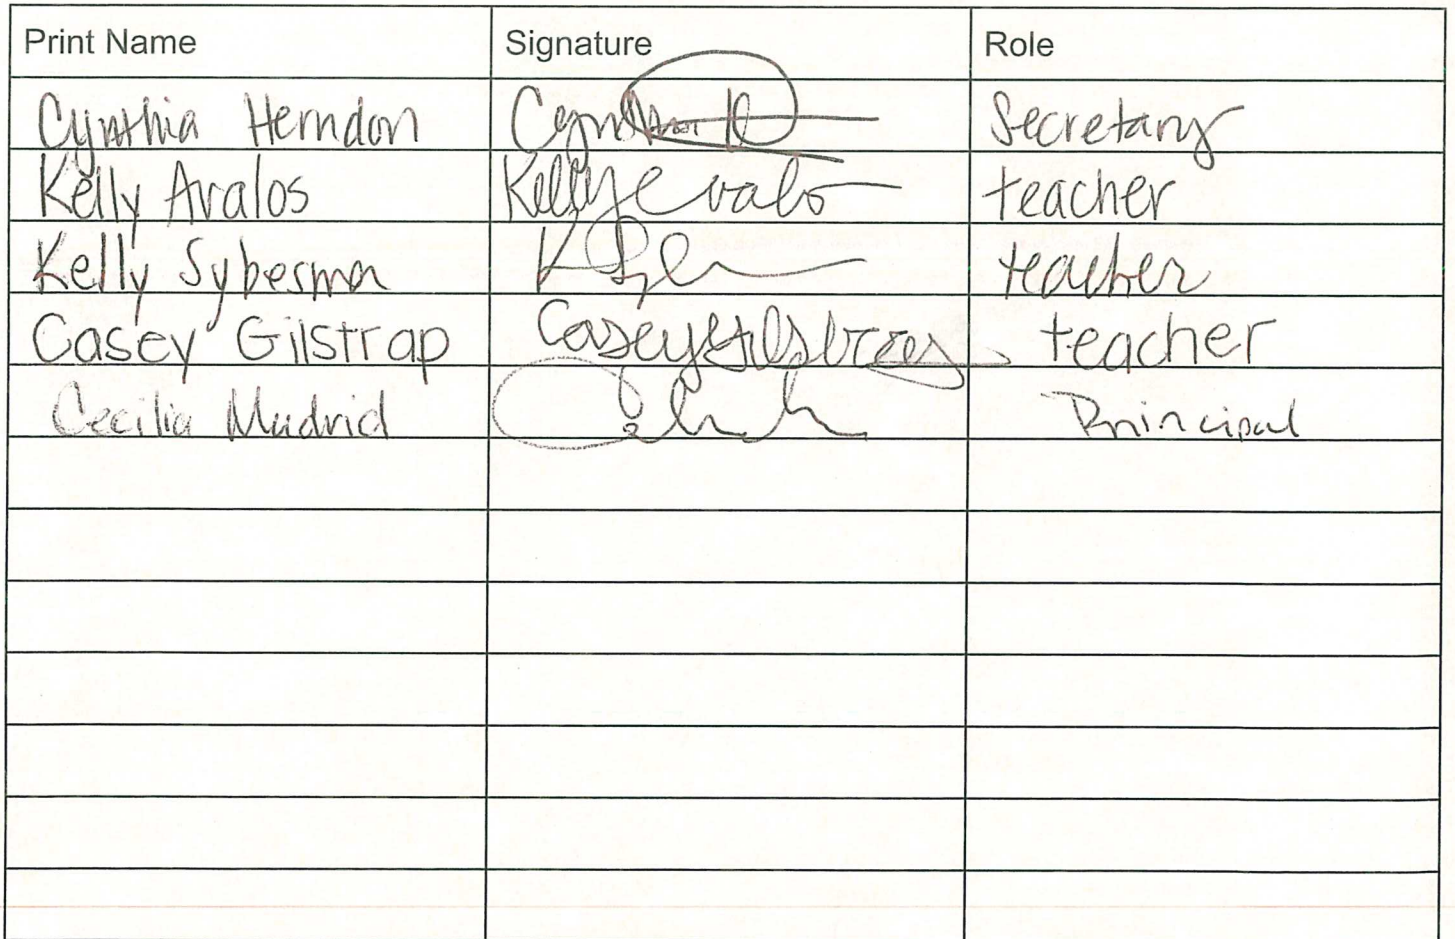 Print Name Signature Role
Cynthia Herndon Secretary
Kelly Avalos Kelly Avalos teacher
Kelly Sybesma teacher
Casey Gilstrap Casey Gilstrap teacher
Cecilia Madrid Principal